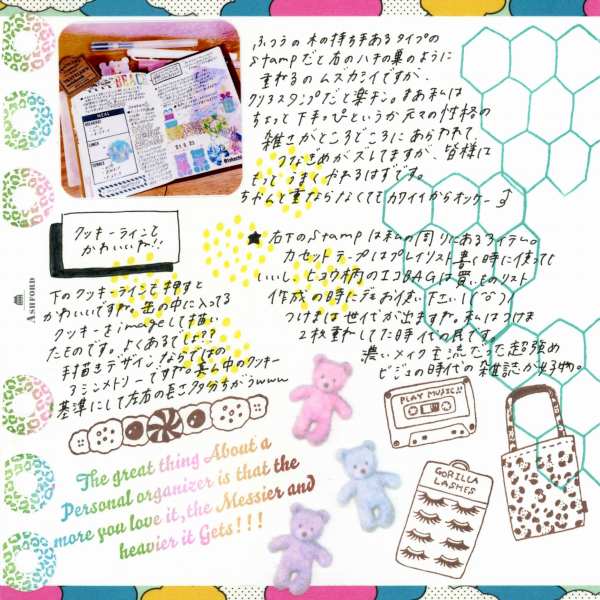 ふつうの木の持ち手あるタイプの
Stampだと右のハチの巣のように
重ねるのムズカシイですが、
クリアスタンプだと楽チン。まあ私は
ちょっと下手っぴというか元々の性格の
雑さがところどころにあらわれて、
つなぎめがズレてますが、皆様は
もっとうまくやれるはずです。
ちゃんと重ならなくてもカワイイからオッケー
クッキーラインと
かわいいね!!
★右下のStampは私の周りにあるアイテム。
カセットテープはプレイリスト書く時に使っても
いいし、ヒョウ柄のエコBAGは買いものリスト
作成の時にでもお使い下さい!(^o^)
つけまは世代が出ますね。私はつけま
2枚重ねしてた時代の民です。
濃いメイク主流だった超強め
ビジュの時代の雑誌が好物。
下のクッキーラインを押すと
かわいいですね。缶の中に入ってる
クッキーをimageして描い
たものです。よくあるでしょ??
手描きデザインならではの
アシンメトリーですね。真ん中のクッキー
基準にして左右の長さ少々ちがうwww
ASHFORD
MEAL
PLAY MUSIC!!
GORILLA
LASHES
The great thing About a
Personal organizer is that the
more you love it, the Messier and
heavier it Gets!!!